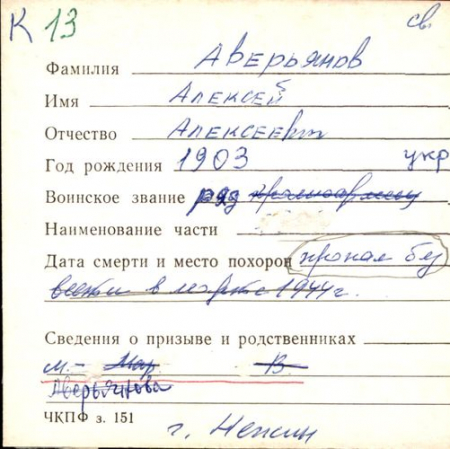 К 13 св.
Фамилия Аверьянов
Имя Алексей
Отчество Алексеевич
Год рождения 1903 укр
Воинское звание ряд красноармеец
Наименование части
Дата смерти и место похорон пропал без
вести в марте 1944 г.
Сведения о призыве и родственниках
м. – Мар В
Аверьянова
ЧКПФ з. 151 г. Нежин